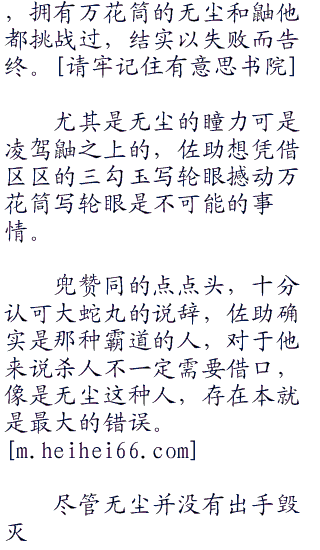 ，拥有万花筒的无尘和鼬他
都挑战过，结实以失败而告
终。[请牢记住有意思书院]
尤其是无尘的瞳力可是
凌驾鼬之上的，佐助想凭借
区区的三勾玉写轮眼撼动万
花筒写轮眼是不可能的事
情。
兜赞同的点点头，十分
认可大蛇丸的说辞，佐助确
实是那种霸道的人，对于他
来说杀人不一定需要借口，
像是无尘这种人，存在本就
是最大的错误。
[m.heihei66.com]
尽管无尘并没有出手毁
灭